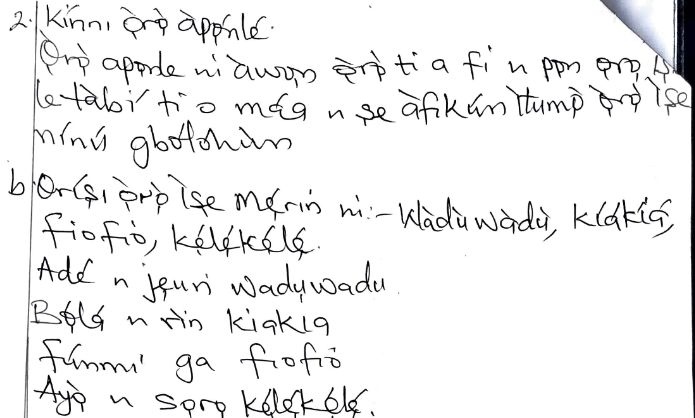 2. Kínni ọ̀rọ̀ àpọ́nlé.
Ọ̀rọ̀ aponle ni àwọn ọ̀rọ̀ ti a fi n pọn ọrọ ìṣe
le tàbí ti o máa n ṣe àfikún ìtumọ̀ ọ̀rọ̀ ìṣe
nínú gbólóhùn
b Oríṣi ọ̀rọ̀ ìṣe mẹ́rin ni:- Wàdùwàdù, kíákíá,
fiofio, kẹ́lẹ́kẹ́lẹ́.
Adé n jẹun waduwadu.
Bọ́lá n rìn kiakia
fúnmi ga fiofio
Ayọ̀ n sọrọ kẹ́lẹ́kẹ́lẹ́.